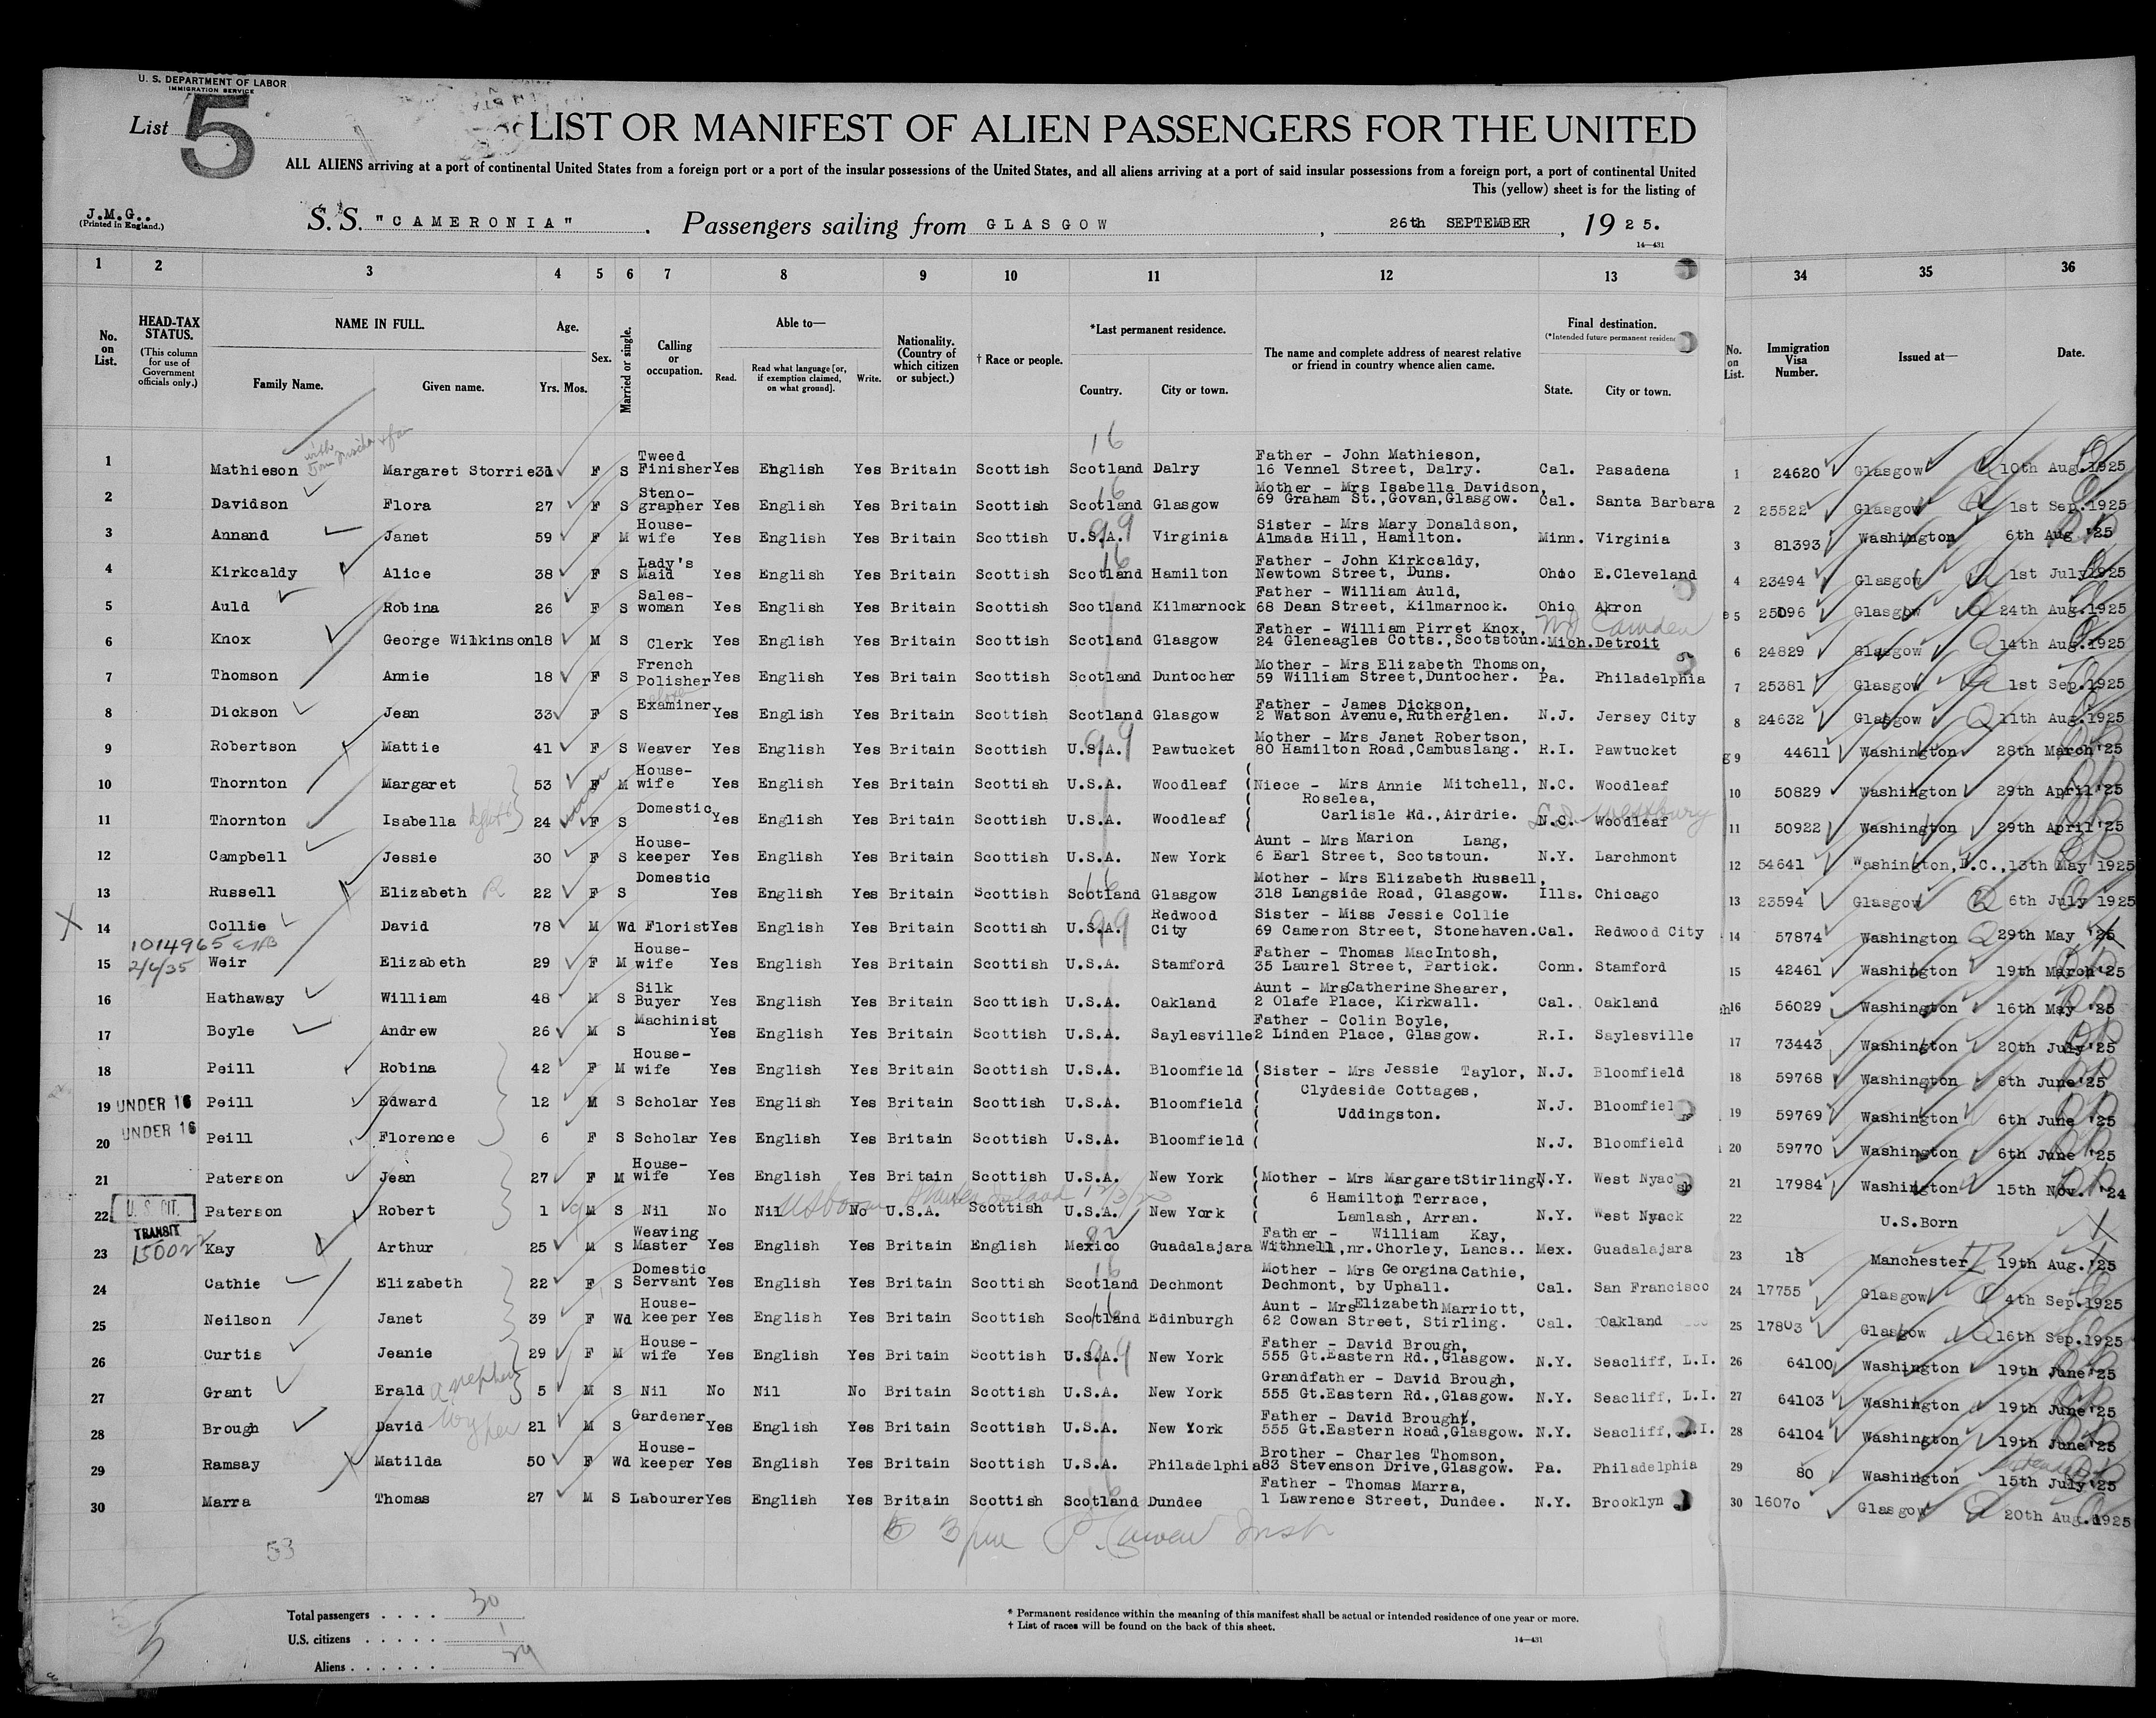 U. S. DEPARTMENT OF LABOR
IMMIGRATION SERVICE
List 5
LIST OR MANIFEST OF ALIEN PASSENGERS FOR THE UNITED
ALL ALIENS arriving at a port of continental United States from a foreign port or a port of the insular possessions of the United States, and all aliens arriving at a port of said insular possessions from a foreign port, a port of continental United
This (yellow) sheet is for the listing of
J.M.G..
(Printed in England.)
S. S. "CAMERONIA" . Passengers sailing from GLASGOW , 26th SEPTEMBER , 1925.
14—431
1 2 3 4 5 6 7 8 9 10 11 12 13 34 35 36
No. on List.
HEAD-TAX STATUS.
(This column for use of Government officials only.)
NAME IN FULL.
Family Name. Given name.
Age.
Yrs. Mos.
Sex.
Married or single.
Calling or occupation.
Able to—
Read. Read what language [or, if exemption claimed, on what ground]. Write.
Nationality. (Country of which citizen or subject.)
† Race or people.
*Last permanent residence.
Country. City or town.
The name and complete address of nearest relative or friend in country whence alien came.
Final destination.
(*Intended future permanent residen
State. City or town.
No. on List.
Immigration Visa Number.
Issued at—
Date.
16
1 Mathieson Margaret Storrie 31 F S Tweed Finisher Yes English Yes Britain Scottish Scotland Dalry Father - John Mathieson, 16 Vennel Street, Dalry. Cal. Pasadena 1 24620 Glasgow 10th Aug.1925
2 Davidson Flora 27 F S Steno-grapher Yes English Yes Britain Scottish Scotland Glasgow Mother - Mrs Isabella Davidson, 69 Graham St.,Govan,Glasgow. Cal. Santa Barbara 2 25522 Glasgow 1st Sep.1925
3 Annand Janet 59 F M House-wife Yes English Yes Britain Scottish U.S.A. 99 Virginia Sister - Mrs Mary Donaldson, Almada Hill, Hamilton. Minn. Virginia 3 81393 Washington 6th Aug '25
4 Kirkcaldy Alice 38 F S Lady's Maid Yes English Yes Britain Scottish Scotland Hamilton Father - John Kirkcaldy, Newtown Street, Duns. Ohio E.Cleveland 4 23494 Glasgow 1st July1925
5 Auld Robina 26 F S Sales-woman Yes English Yes Britain Scottish Scotland Kilmarnock Father - William Auld, 68 Dean Street, Kilmarnock. Ohio Akron 5 25096 Glasgow 24th Aug.1925
NJ Camden
6 Knox George Wilkinson 18 M S Clerk Yes English Yes Britain Scottish Scotland Glasgow Father - William Pirret Knox, 24 Gleneagles Cotts.,Scotstoun. Mich. Detroit 6 24829 Glasgow 14th Aug.1925
7 Thomson Annie 18 F S French Polisher Yes English Yes Britain Scottish Scotland Duntocher Mother - Mrs Elizabeth Thomson, 59 William Street,Duntocher. Pa. Philadelphia 7 25381 Glasgow 1st Sep.1925
8 Dickson Jean 33 F S Examiner Yes English Yes Britain Scottish Scotland Glasgow Father - James Dickson, 2 Watson Avenue,Rutherglen. N.J. Jersey City 8 24632 Glasgow 11th Aug.1925
9 Robertson Mattie 41 F S Weaver Yes English Yes Britain Scottish U.S.A. 99 Pawtucket Mother - Mrs Janet Robertson, 80 Hamilton Road,Cambuslang. R.I. Pawtucket 9 44611 Washington 28th March'25
10 Thornton Margaret 53 F M House-wife Yes English Yes Britain Scottish U.S.A. Woodleaf Niece - Mrs Annie Mitchell, N.C. Woodleaf 10 50829 Washington 29th April'25
Roselea,
11 Thornton Isabella 24 F S Domestic Yes English Yes Britain Scottish U.S.A. Woodleaf Carlisle Rd.,Airdrie. N.C. Woodleaf 11 50922 Washington 29th April'25
12 Campbell Jessie 30 F S House-keeper Yes English Yes Britain Scottish U.S.A. New York Aunt - Mrs Marion Lang, 6 Earl Street, Scotstoun. N.Y. Larchmont 12 54641 Washington,D.C., 13th May 1925
13 Russell Elizabeth R 22 F S Domestic Yes English Yes Britain Scottish Scotland Glasgow Mother - Mrs Elizabeth Russell, 318 Langside Road, Glasgow. Ills. Chicago 13 23594 Glasgow 6th July 1925
X 14 Collie David 78 M Wd Florist Yes English Yes Britain Scottish U.S.A. 99 Redwood City Sister - Miss Jessie Collie 69 Cameron Street, Stonehaven. Cal. Redwood City 14 57874 Washington 29th May '25
1014965
2/6/35
15 Weir Elizabeth 29 F M House-wife Yes English Yes Britain Scottish U.S.A. Stamford Father - Thomas MacIntosh, 35 Laurel Street, Partick. Conn. Stamford 15 42461 Washington 19th March'25
16 Hathaway William 48 M S Silk Buyer Yes English Yes Britain Scottish U.S.A. Oakland Aunt - MrsCatherine Shearer, 2 Olafe Place, Kirkwall. Cal. Oakland 16 56029 Washington 16th May '25
17 Boyle Andrew 26 M S Machinist Yes English Yes Britain Scottish U.S.A. Saylesville Father - Colin Boyle, 2 Linden Place, Glasgow. R.I. Saylesville 17 73443 Washington 20th July'25
18 Peill Robina 42 F M House-wife Yes English Yes Britain Scottish U.S.A. Bloomfield Sister - Mrs Jessie Taylor, N.J. Bloomfield 18 59768 Washington 6th June'25
19 UNDER 16 Peill Edward 12 M S Scholar Yes English Yes Britain Scottish U.S.A. Bloomfield Clydeside Cottages, N.J. Bloomfiel 19 59769 Washington 6th June '25
Uddingston.
20 UNDER 16 Peill Florence 6 F S Scholar Yes English Yes Britain Scottish U.S.A. Bloomfield N.J. Bloomfield 20 59770 Washington 6th June '25
21 Paterson Jean 27 F M House-wife Yes English Yes Britain Scottish U.S.A. New York Mother - Mrs MargaretStirling, N.Y. West Nyack 21 17984 Washington 15th Nov. '24
6 Hamilton Terrace,
22 U. S. CIT. Paterson Robert 1 M S Nil No Nil No U.S.A. Scottish U.S.A. New York Lamlash, Arran. N.Y. West Nyack 22 U.S.Born
TRANSIT
23 Kay Arthur 25 M S Weaving Master Yes English Yes Britain English Mexico Guadalajara Father - William Kay, Withnell,nr.Chorley, Lancs.. Mex. Guadalajara 23 18 Manchester 19th Aug.'25
24 Cathie Elizabeth 22 F S Domestic Servant Yes English Yes Britain Scottish Scotland Dechmont Mother - Mrs Georgina Cathie, Dechmont, by Uphall. Cal. San Francisco 24 17755 Glasgow 4th Sep.1925
25 Neilson Janet 39 F Wd House-keeper Yes English Yes Britain Scottish Scotland Edinburgh Aunt - MrsElizabeth Marriott, 62 Cowan Street, Stirling. Cal. Oakland 25 17803 Glasgow 16th Sep.1925
26 Curtis Jeanie 29 F M House-wife Yes English Yes Britain Scottish U.S.A. 99 New York Father - David Brough, 555 Gt.Eastern Rd.,Glasgow. N.Y. Seacliff, L.I. 26 64100 Washington 19th June'25
27 Grant Erald a nephew 5 M S Nil No Nil No Britain Scottish U.S.A. New York Grandfather - David Brough, 555 Gt.Eastern Rd.,Glasgow. N.Y. Seacliff, L.I. 27 64103 Washington 19th June'25
28 Brough David 21 M S Gardener Yes English Yes Britain Scottish U.S.A. New York Father - David Brough, 555 Gt.Eastern Road,Glasgow. N.Y. Seacliff, L.I. 28 64104 Washington 19th June'25
29 Ramsay Matilda 50 F Wd House-keeper Yes English Yes Britain Scottish U.S.A. Philadelphia Brother - Charles Thomson, 83 Stevenson Drive,Glasgow. Pa. Philadelphia 29 80 Washington 15th July'25
30 Marra Thomas 27 M S Labourer Yes English Yes Britain Scottish Scotland Dundee Father - Thomas Marra, 1 Lawrence Street, Dundee. N.Y. Brooklyn 30 16070 Glasgow 20th Aug.1925
53
Total passengers . . . . 30
U.S. citizens . . . . . 1
Aliens . . . . . . 29
* Permanent residence within the meaning of this manifest shall be actual or intended residence of one year or more.
† List of races will be found on the back of this sheet.
14—431